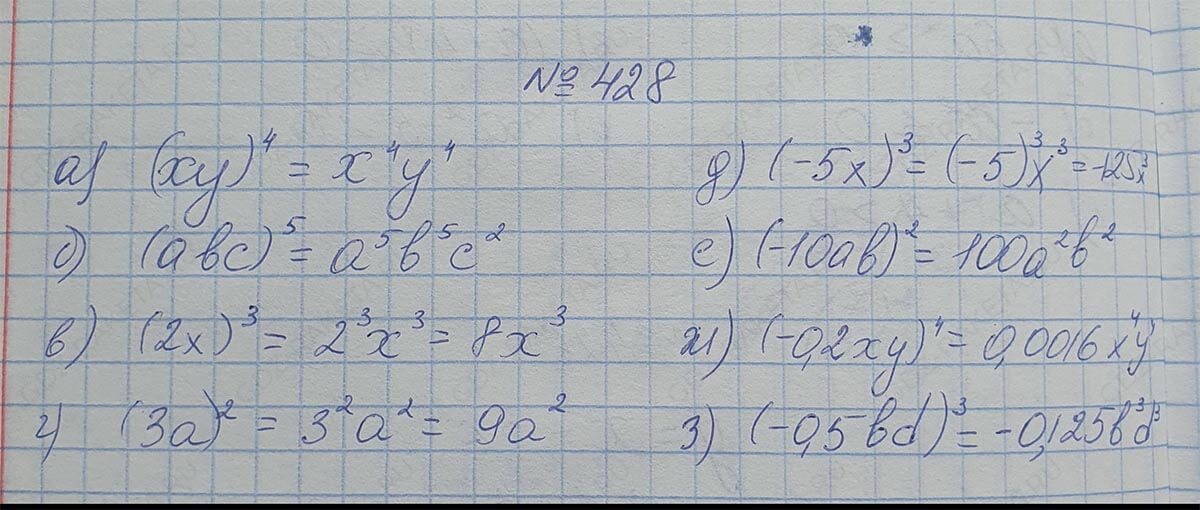 № 428
а) (xy)⁴ = x⁴y⁴
б) (abc)⁵ = a⁵b⁵c²
в) (2x)³ = 2³x³ = 8x³
г) (3a)² = 3²a² = 9a²
д) (-5x)³ = (-5)³x³ = -125x³
е) (-10ab)² = 100a²b²
ж) (-0,2xy)⁴ = 0,0016x⁴y⁴
з) (-0,5bd)³ = -0,125b³d³